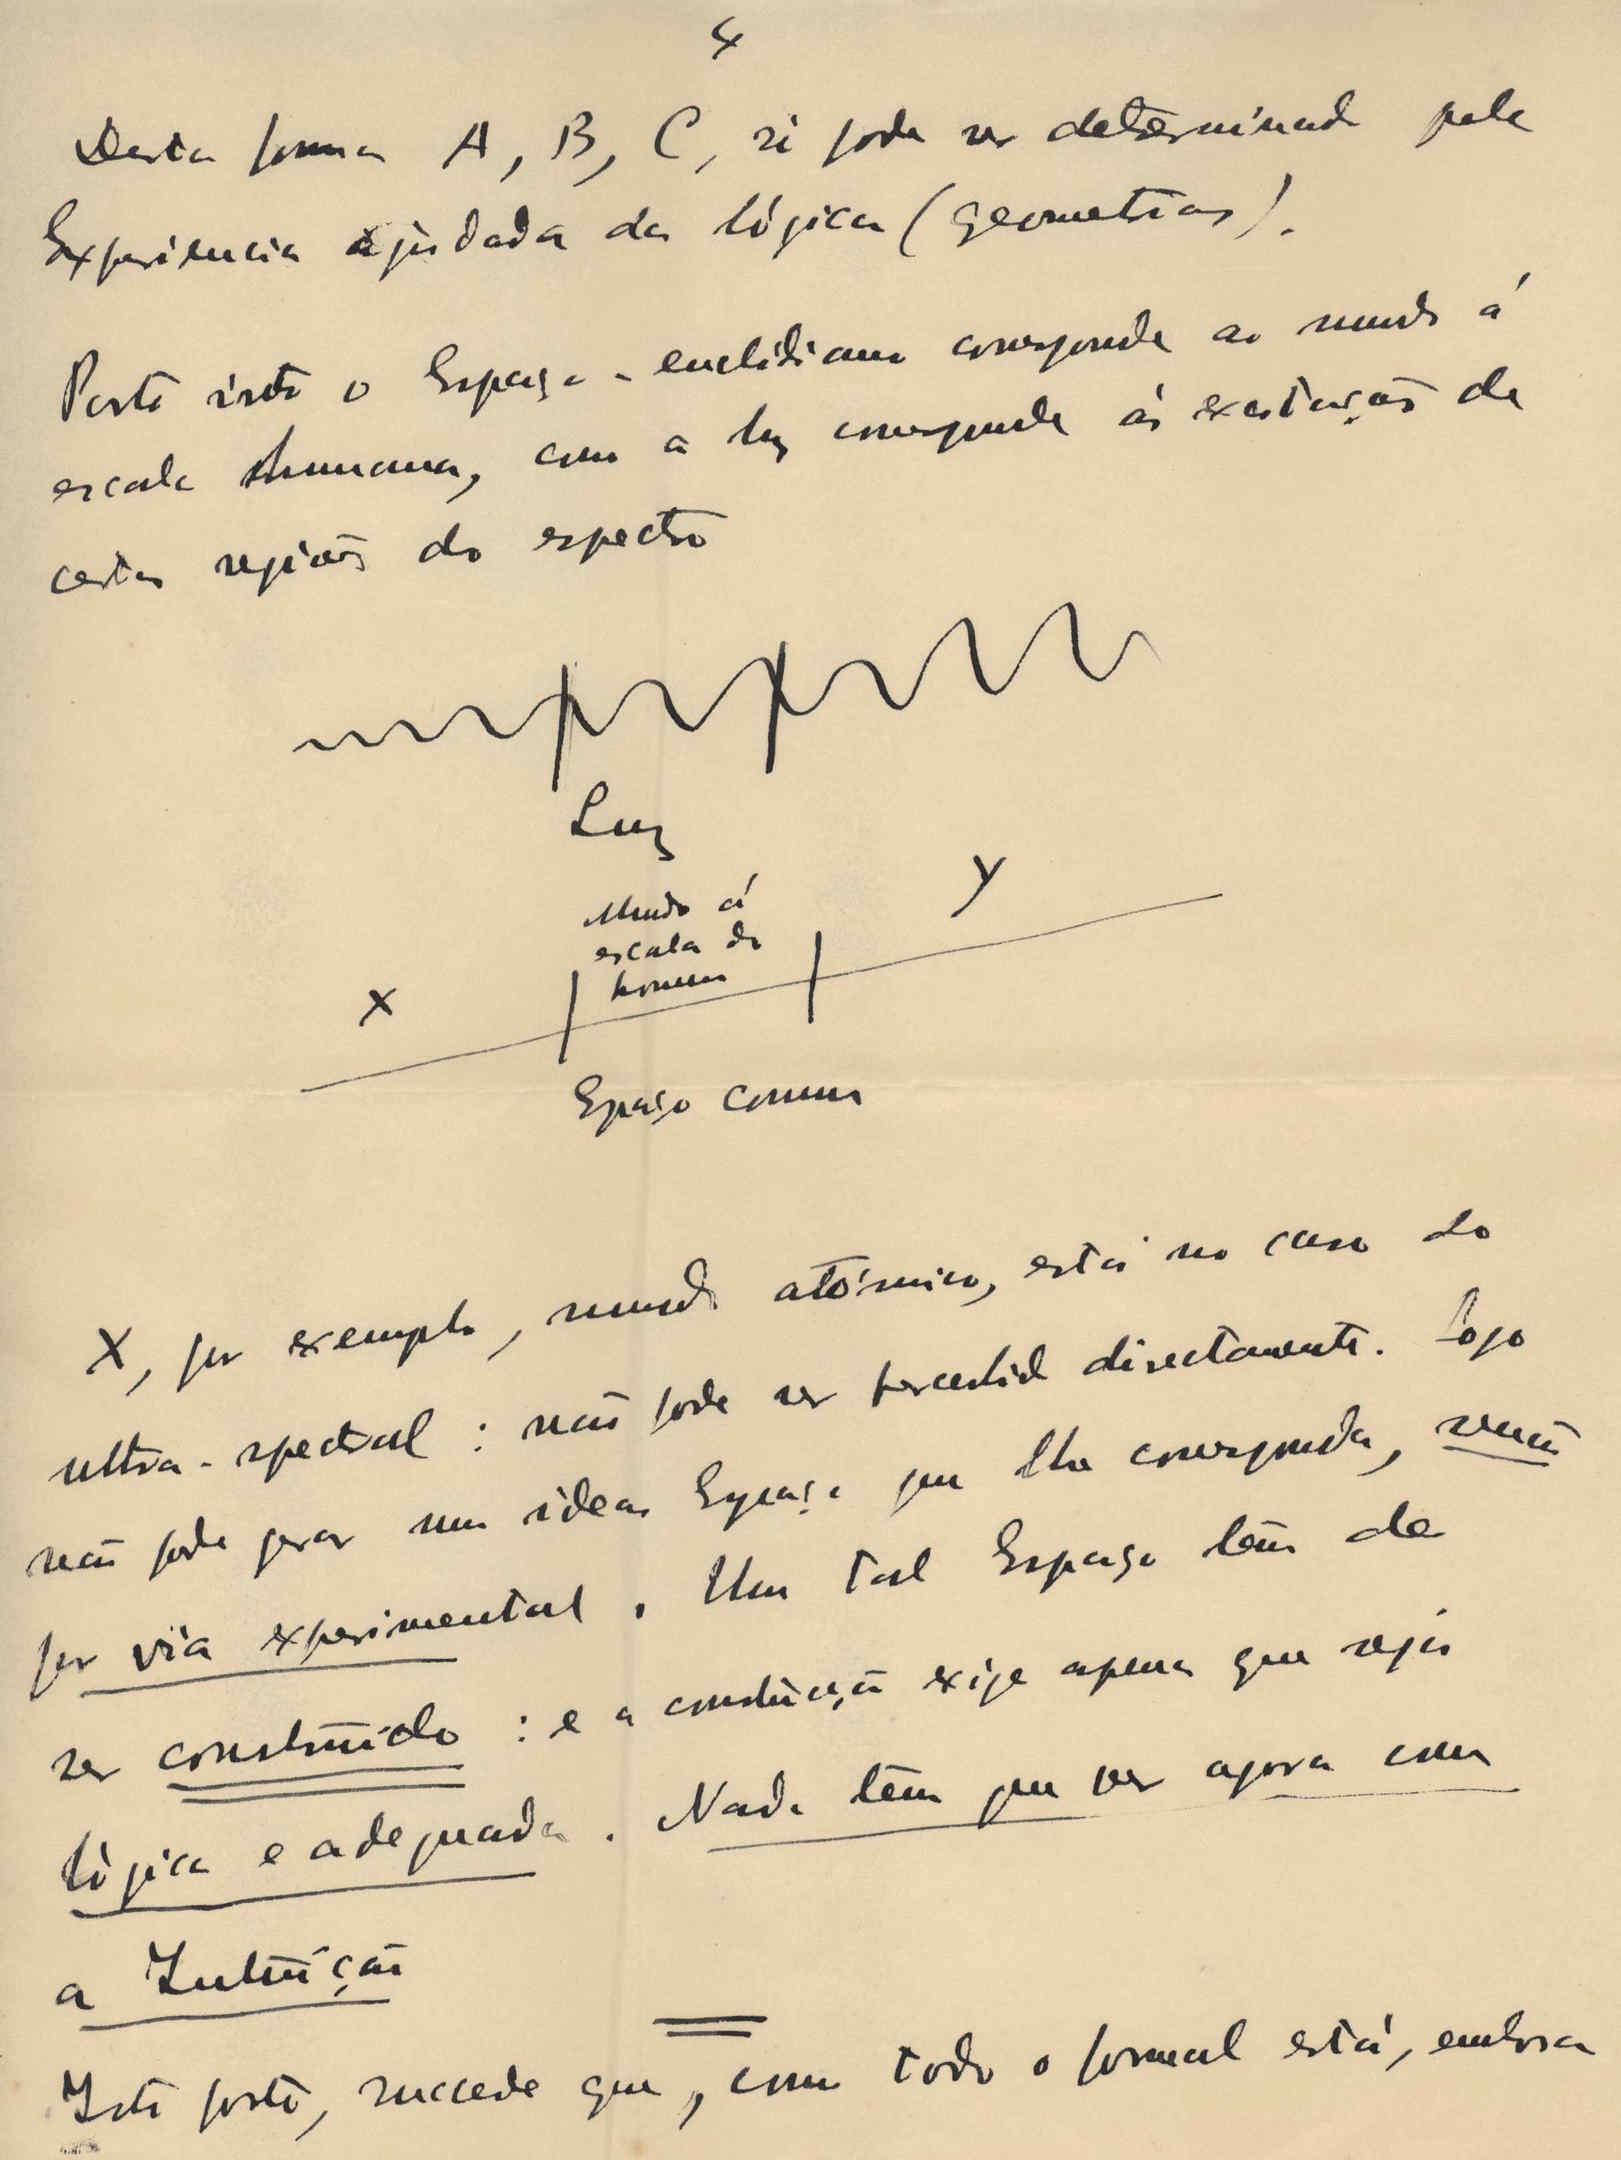 4
Desta forma A, B, C, só pode ser determinado pela
Experiencia ajudada da lógica (geometrias).
Posto isto o Espaço-euclidiano corresponde ao mundo á
escala humana, como a luz corresponde ás excitações de
certas regiões do espectro
Luz
Mundo á
escala do
homem
X
Y
Espaço comum
X, por exemplo, mundo atómico, está no caso do
ultra-spectral: não pode ser percebido directamente. Logo
não pode gerar uma ideia Espaço que lhe corresponda, senão
por via experimental. Um tal Espaço têm de
ser construído: e a construção exige apenas que seja
lógica e adequada. Nada têm que ver agora com
a Intuíção
Isto posto, succede que, como todo o formal está, embora